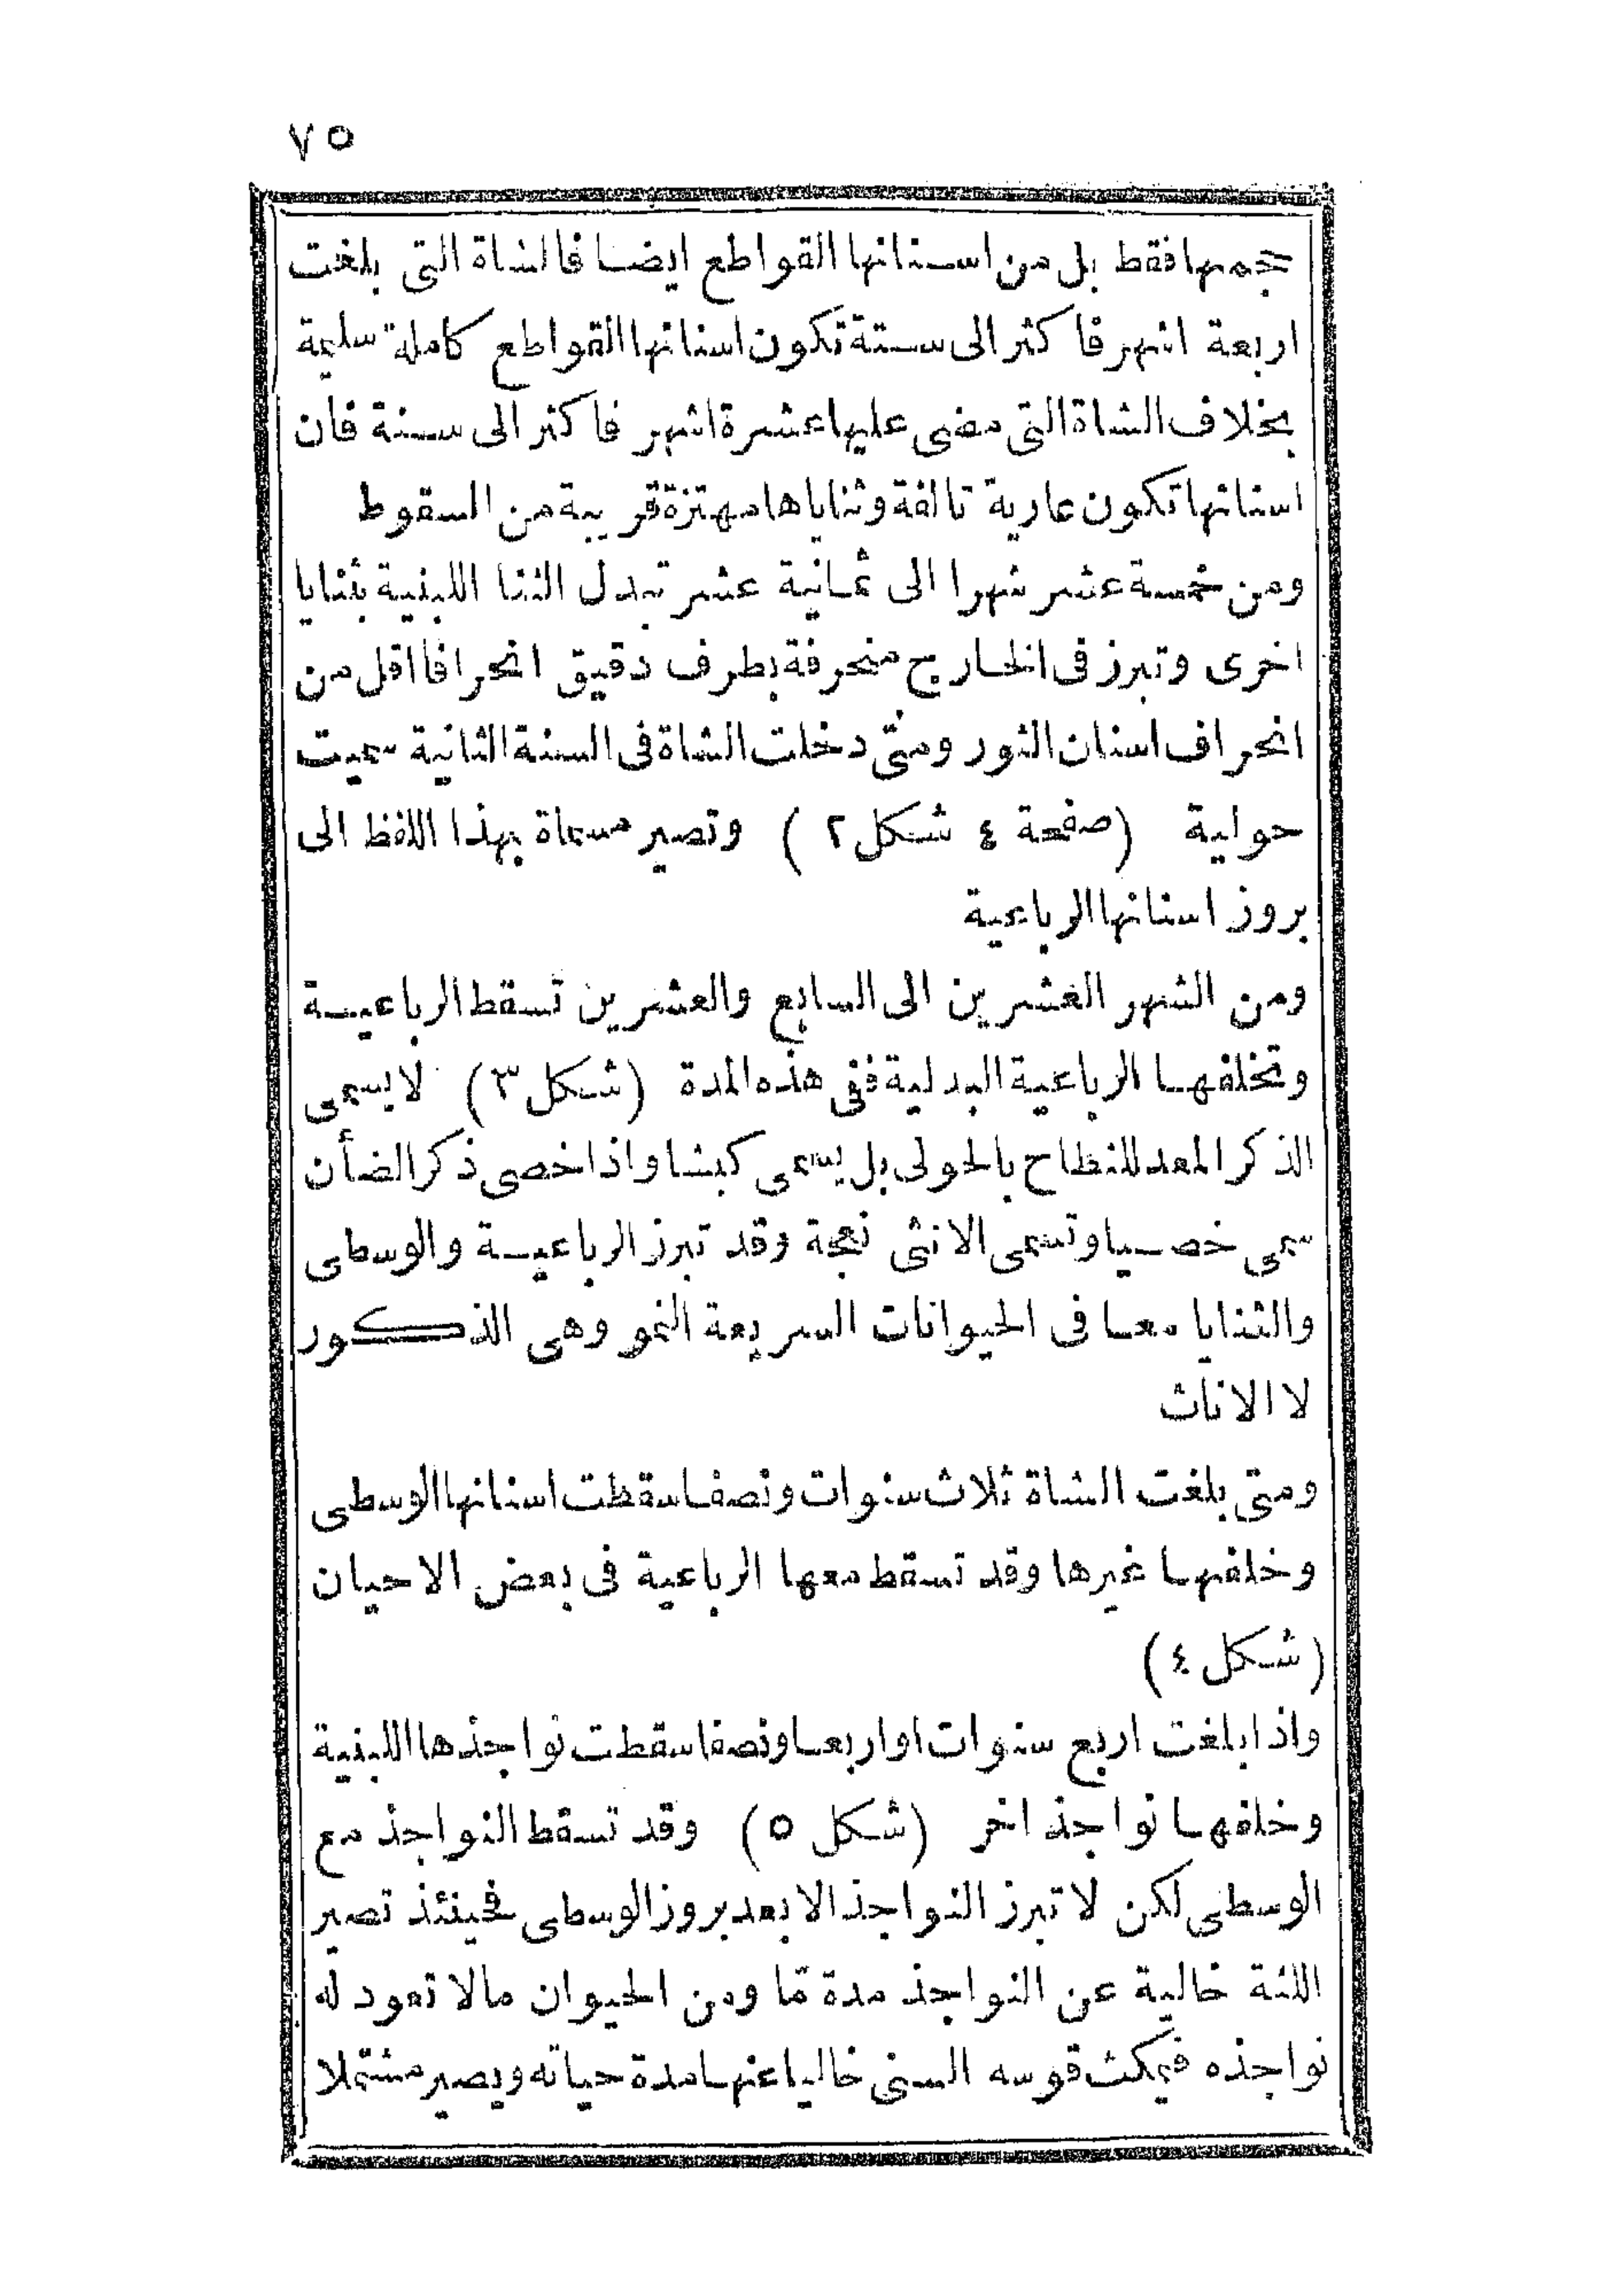 ٧٥
حجمها فقط بل من اسنانها القواطع ايضا فالشاة التى بلغت
اربعة اشهر فاكثر الى ستة تكون اسنانها القواطع كاملة سليمة
بخلاف الشاة التى مضى عليها عشرة اشهر فاكثر الى سنة فان
اسنانها تكون عارية تالفة وثناياها مهتزة قريبة من السقوط
ومن خمسة عشر شهرا الى ثمانية عشر تبدل الثنا اللبنية بثنايا
اخرى وتبرز فى الخارج منحرفة بطرف دقيق انحرافا اقل من
انحراف اسنان الثور ومتى دخلت الشاة فى السنة الثانية سميت
حولية (صفحة ٤ شكل ٢) وتصير مسماة بهذا اللفظ الى
بروز اسنانها الرباعية
ومن الشهر العشرين الى السابع والعشرين تسقط الرباعية
وتخلفها الرباعية البدلية ففى هذه المدة (شكل ٣) لا يسمى
الذكر المعد للنطاح بالحولى بل يسمى كبشا واذا خصى ذكر الضأن
سمى خصيا وتسمى الانثى نعجة وقد تبرز الرباعية والوسطى
والثنايا معا فى الحيوانات السريعة النمو وهى الذكور
لا الاناث
ومتى بلغت الشاة ثلاث سنوات ونصفا سقطت اسنانها الوسطى
وخلفها غيرها وقد تسقط معها الرباعية فى بعض الاحيان
(شكل ٤)
واذا بلغت اربع سنوات او اربعا ونصفا سقطت نواجذها اللبنية
وخلفها نواجذ اخر (شكل ٥) وقد تسقط النواجذ مع
الوسطى لكن لا تبرز النواجذ الا بعد بروز الوسطى فحينئذ تصير
اللثة خالية عن النواجذ مدة مّا ومن الحيوان مالا تعود له
نواجذه فيمكث قوسه السنى خاليا عنها مدة حياته ويصير مشتملا